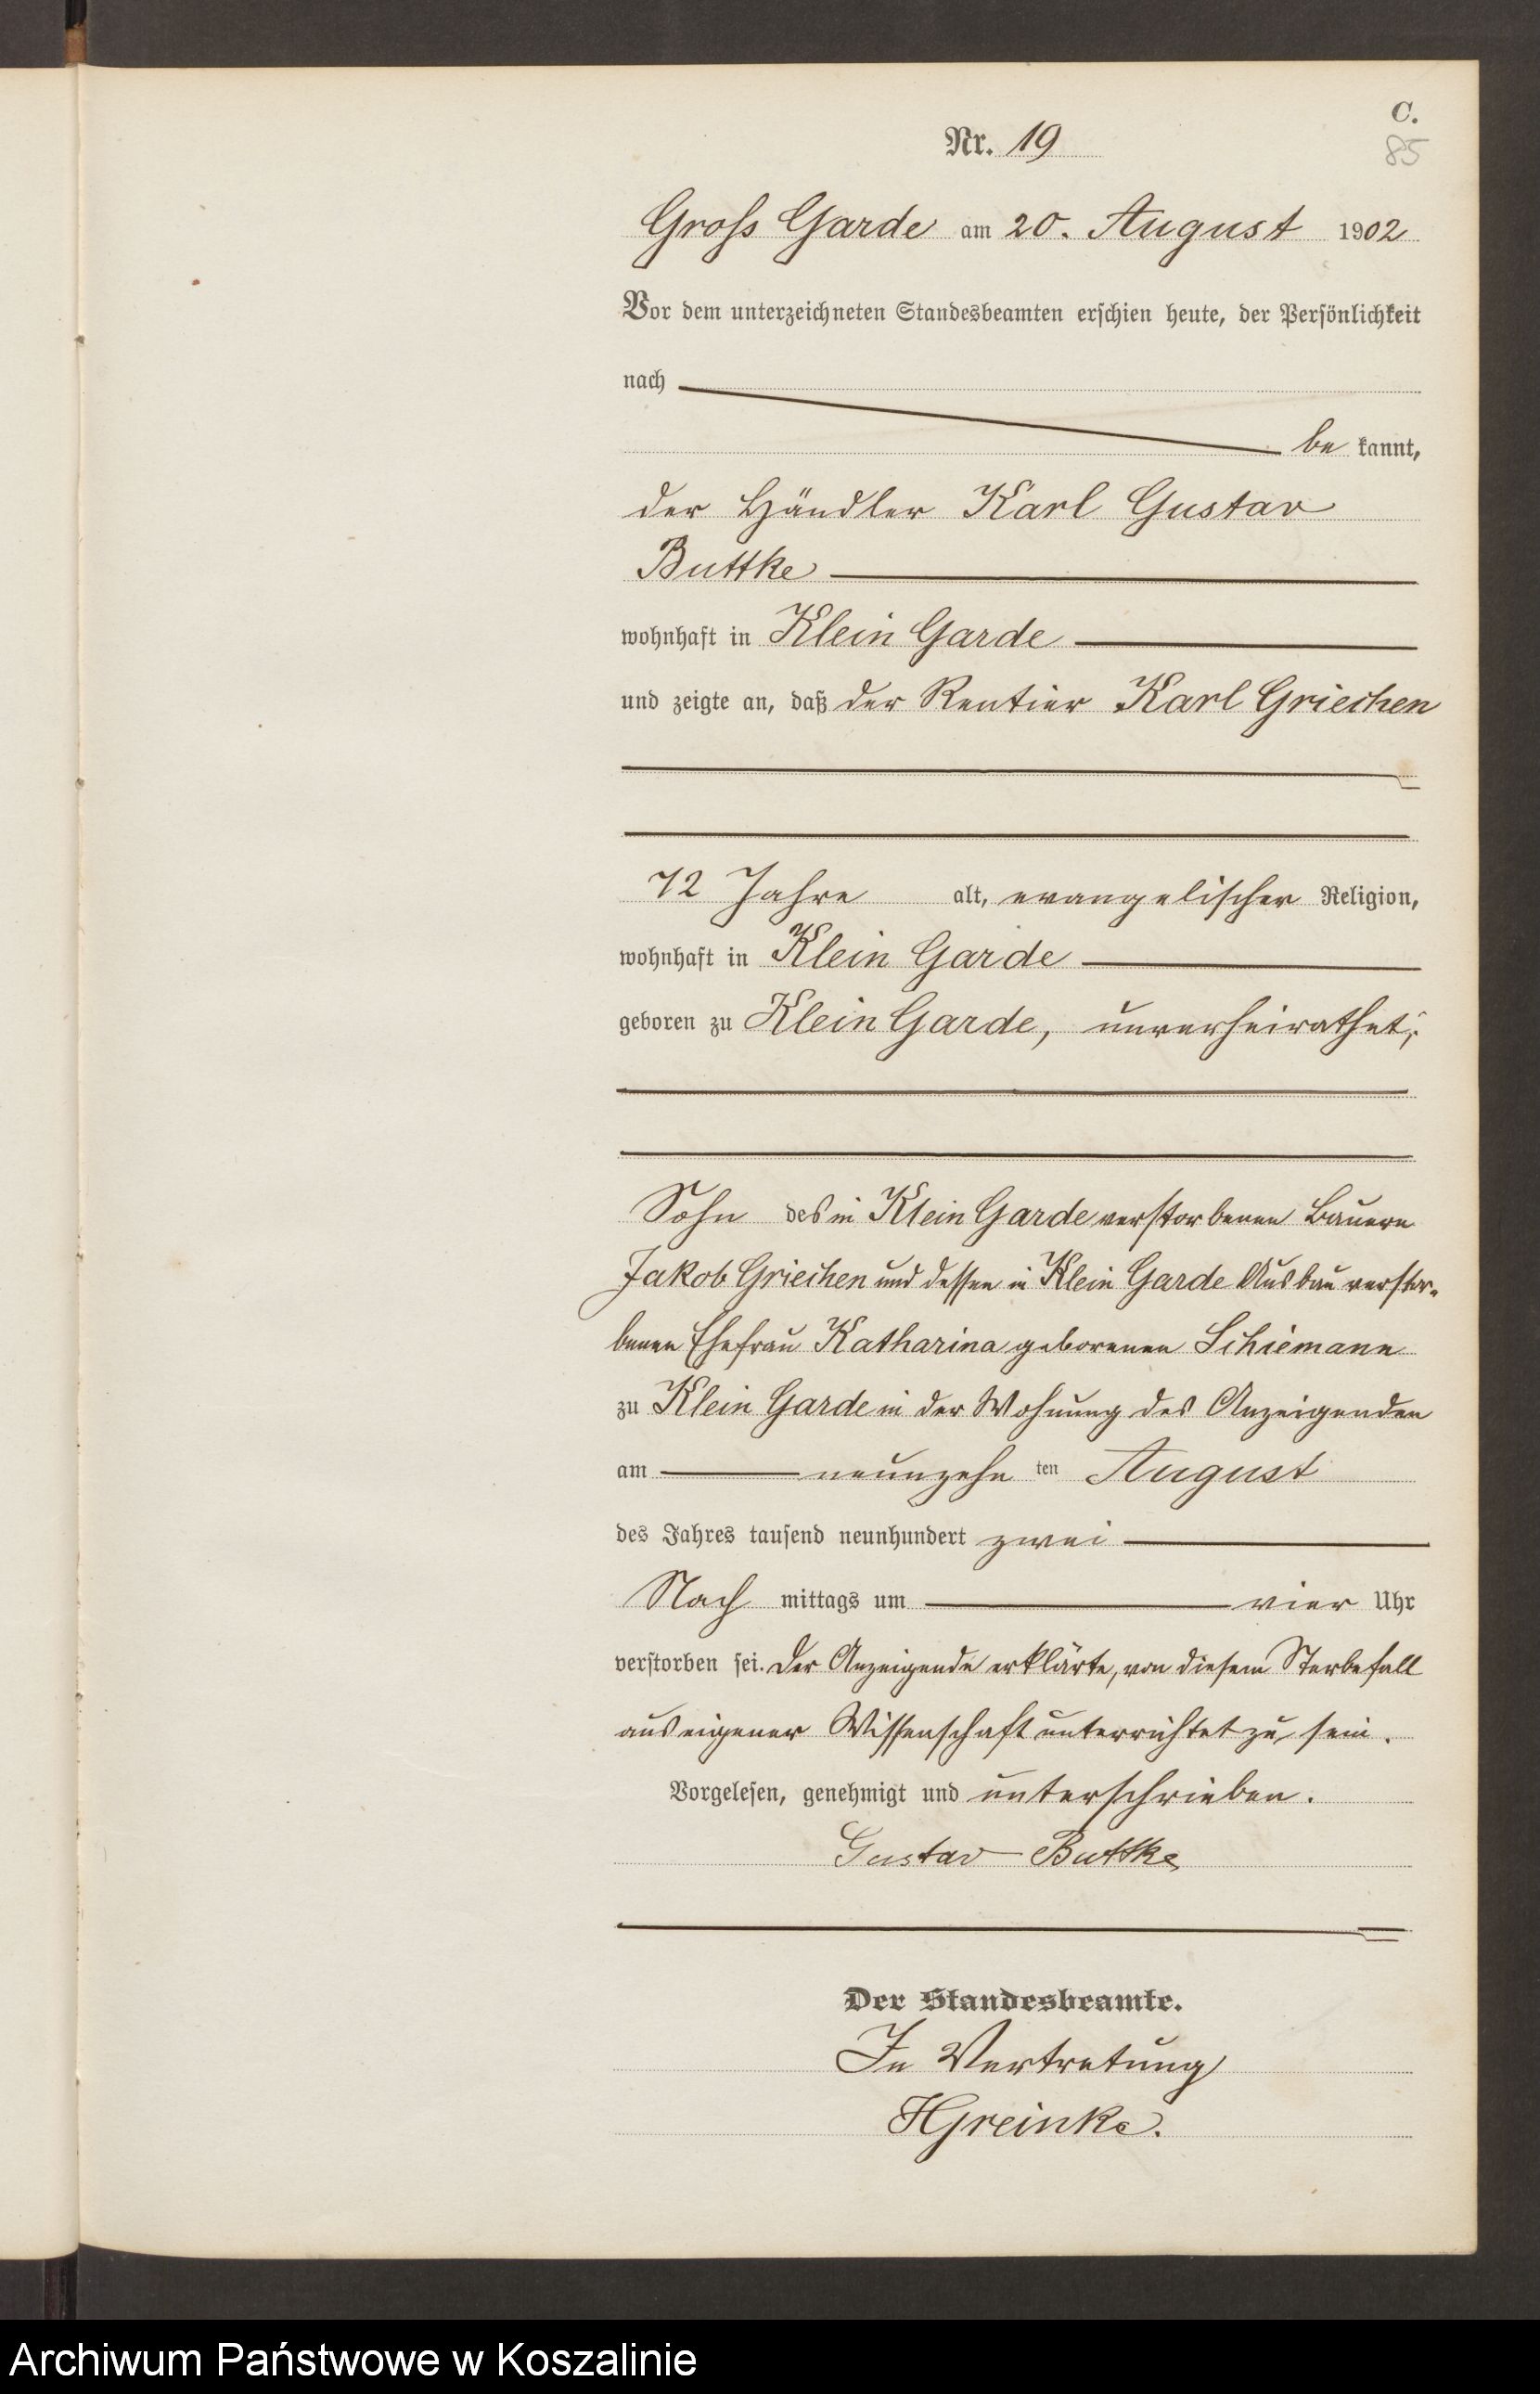 C.
Nr. 19
85
Gross Garde am 20. August 1902
Vor dem unterzeichneten Standesbeamten erschien heute, der Persönlichkeit
nach
be kannt,
der Händler Karl Gustav
Buttke
wohnhaft in Klein Garde
und zeigte an, daß der Rentier Karl Griechen
72 Jahre alt, evangelischer Religion,
wohnhaft in Klein Garde
geboren zu Klein Garde, unverheirathet,
Sohn des in Klein Garde verstorbenen Bauern
Jakob Griechen und dessen in Klein Garde Ausbau verstor-
benen Ehefrau Katharina geborenen Schiemann
zu Klein Garde in der Wohnung des Anzeigenden
am neunzehn ten August
des Jahres tausend neunhundert zwei
Nach mittags um vier Uhr
verstorben sei. Der Anzeigende erklärte, von diesem Sterbefall
aus eigener Wissenschaft unterrichtet zu sein.
Vorgelesen, genehmigt und unterschrieben.
Gustav Buttke
Der Standesbeamte.
In Vertretung
HGreinke.
Archiwum Państwowe w Koszalinie